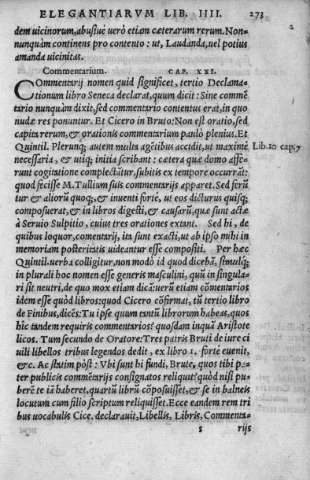 ELEGANTIARVM LIB. IIII. 273
dem uicinorum, abusiuè uerò etiam cæterarum rerum. Non-
nunquàm continens pro contento: ut, Laudanda, uel potius
amanda uicinitas.
Commentarium. CAP. XXI.
COmmentarij nomen quid significet, tertio Declama-
tionum libro Seneca declarat, quum dicit: Sine commē
tario nunquàm dixit, sed commentario contentus erat, in quo
nudæ res ponuntur. Et Cicero in Bruto: Non est oratio, sed
capita rerum, & orationis commentarium paulo plenius. Et
Quintil. Plerunq; autem multa agētibus accidit, ut maximè
necessaria, & utiq; initia scribant: cætera quæ domo affe-
runt cogitatione complectātur, subitis ex tempore occurrāt:
quod fecisse M. Tullium suis commentarijs apparet. Sed ferū
tur & aliorū quoq;, & inuenti forte, ut eos dicturus quisq;
composuerat, & in libros digesti, & causarū, quæ sunt actæ
à Seruio Sulpitio, cuius tres orationes extant. Sed hi, de
quibus loquor, cōmentarij, ita sunt exacti, ut ab ipso mihi in
memoriam posteritatis uideantur esse compositi. Per hæc
Quintil. uerba colligitur, non modò id quod dicebā, simulq;
in plurali hoc nomen esse generis masculini, quū in singula-
ri sit neutri, de quo mox etiam dicā: uerū etiam cōmentarios
idem esse quòd libros: quod Cicero cōfirmat, tū tertio libro
de Finibus, dicēs: Tu ipse quum tantū librorum habeas, quos
hic tandem requiris commentarios? quosdam inquā Aristote
licos. Tum secundo de Oratore: Tres patris Bruti de iure ci
uili libellos tribus legendos dedit, ex libro I. fortè euenit,
&c. Ac statim pòst: Vbi sunt hi fundi, Brute, quos tibi pa-
ter publicis commētarijs consignatos reliquit? quòd nisi pu-
berē te iā haberet, quartū librū cōposuisset, & se in balneis
locutum cum filio scriptum reliquisset. Ecce eandem rem tri
bus uocabulis Cice. declarauit, Libellis, Libris, Commenta-
s rijs
Lib. 10 cap. 7